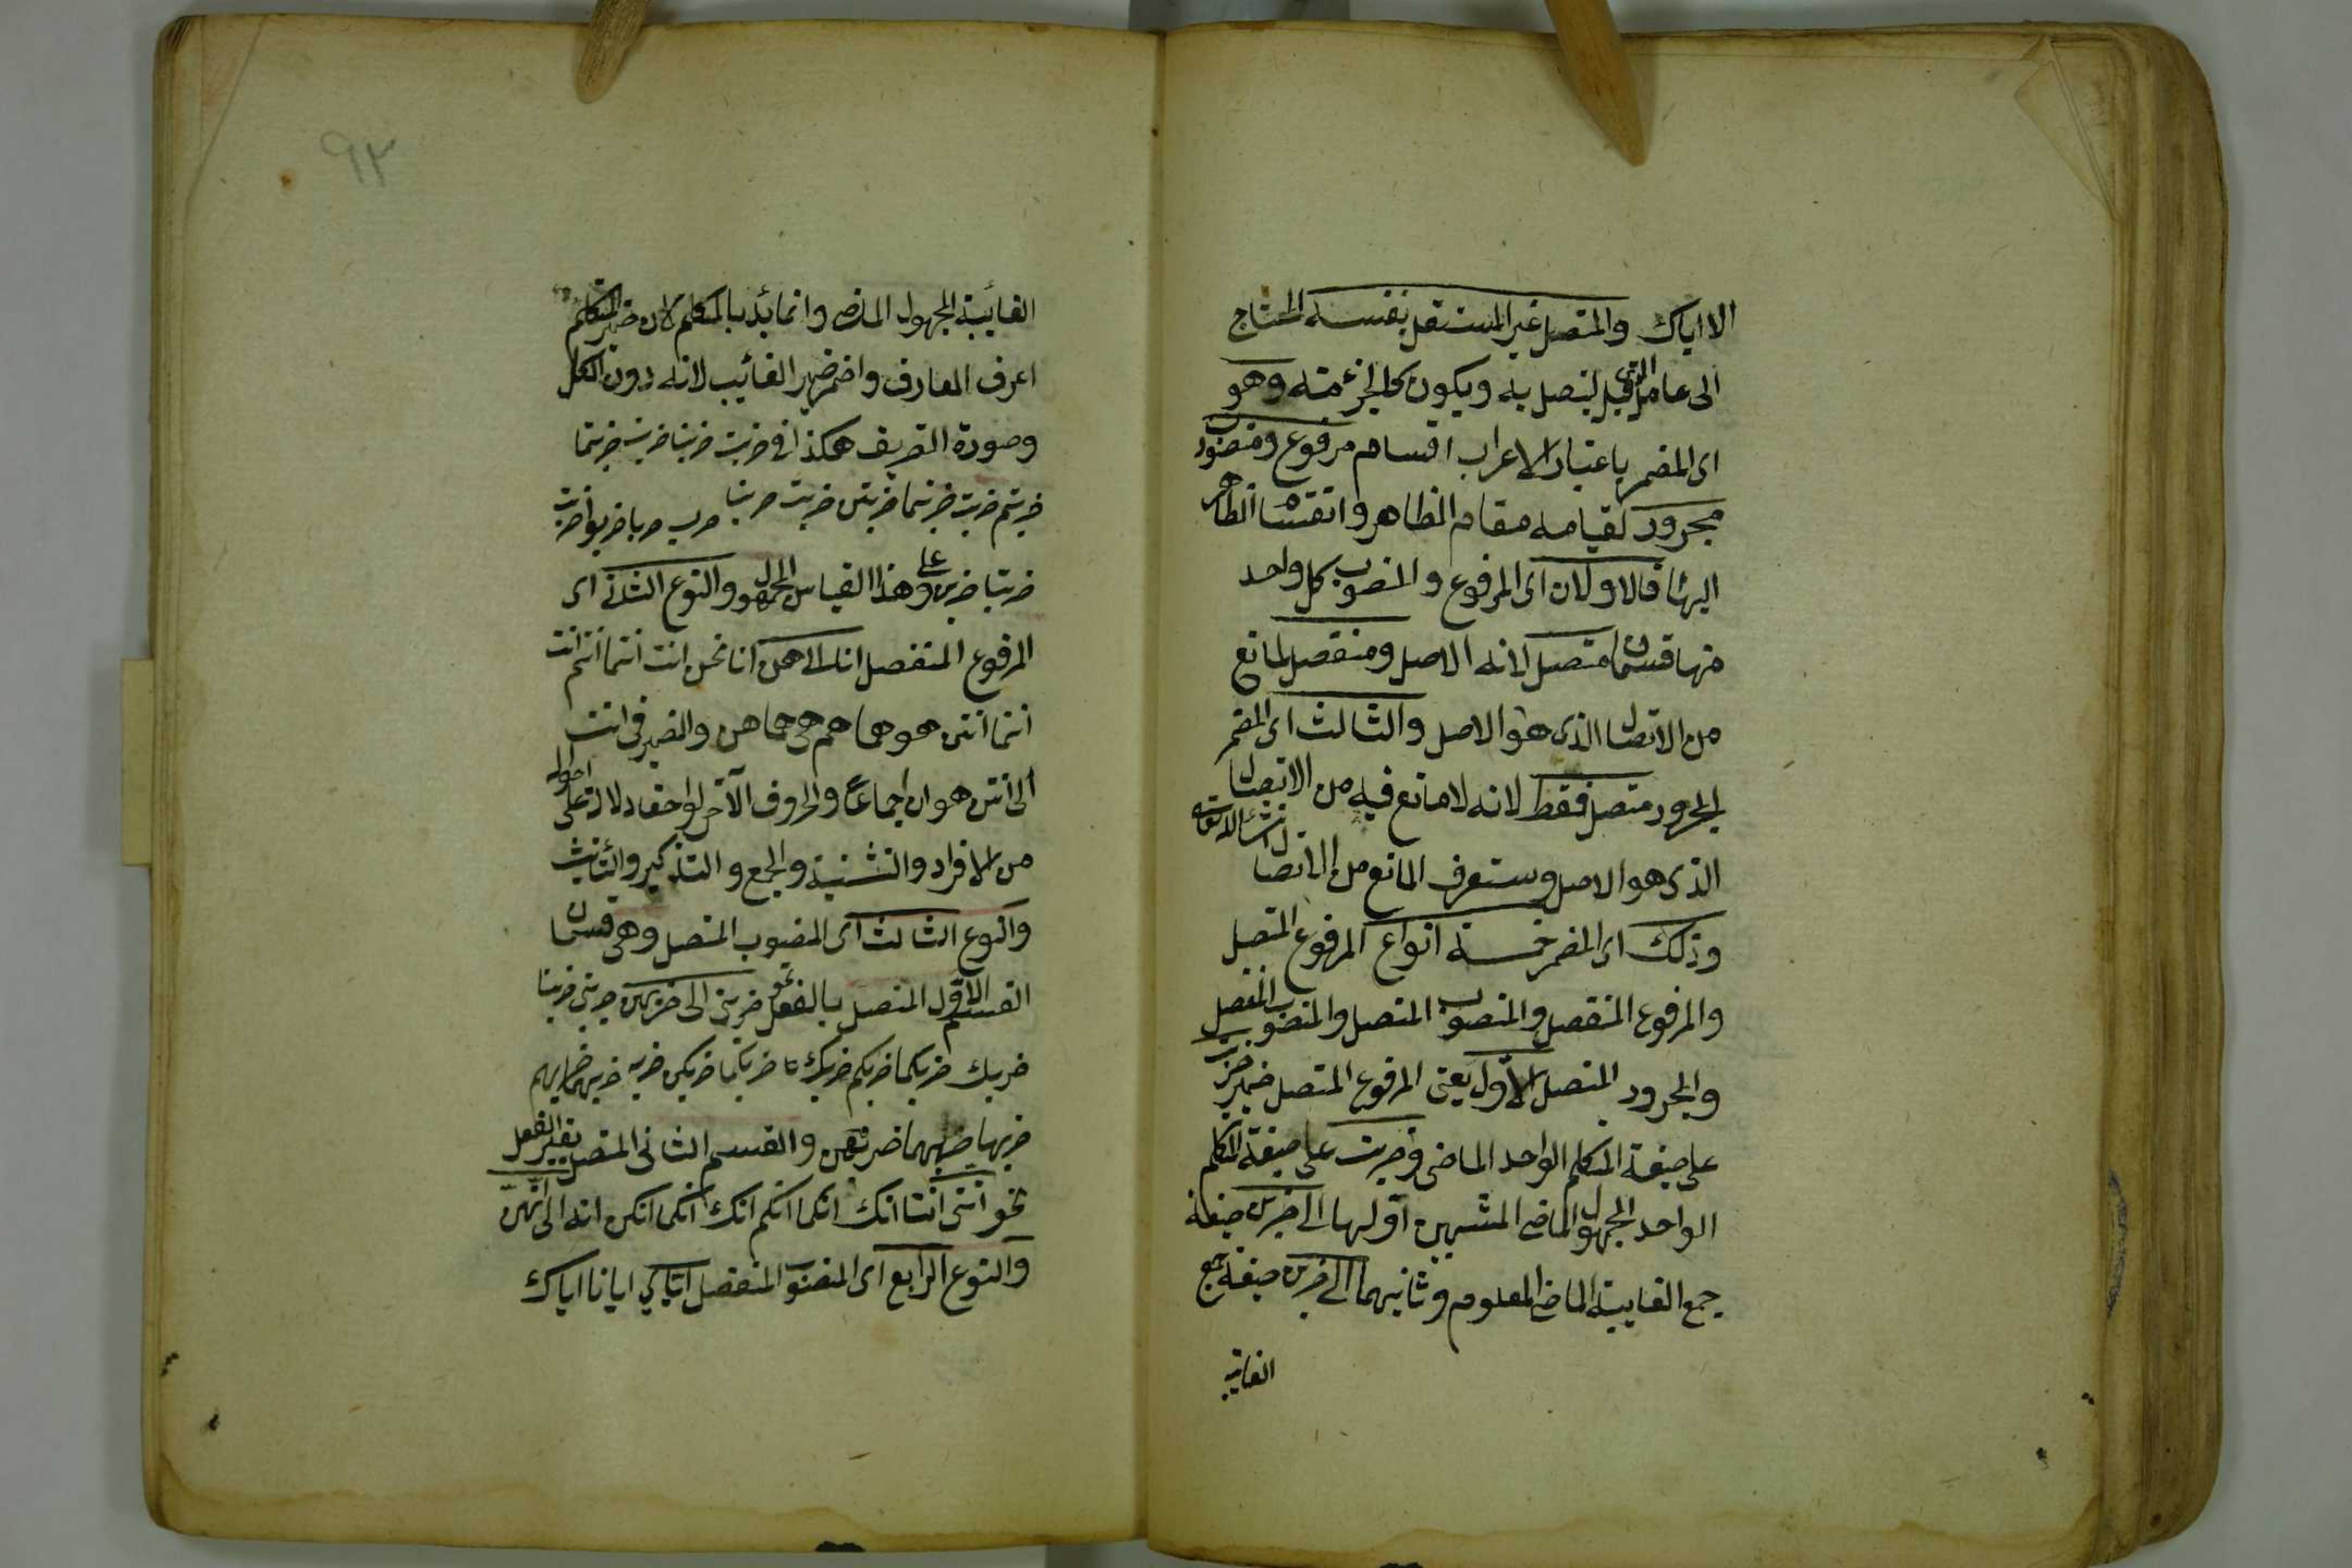 الا اياك والمتصل غير المستقل بنفسه المحتاج
الى عامل الذى قبله ليتصل به ويكون كالجزء منه وهو
اى المضمر باعتبار الاعراب اقسام مرفوع ومنصوب
مجرور لقيامه مقام الظاهر وانقسام الظاهر
اليها فالاولان اى المرفوع والمنصوب كل واحد
منهما قسمان متصل لانه الاصل ومنفصل لمانع
من الاتصال الذى هو الاصل والثالث اى المضمر
المجرور متصل فقط لانه لا مانع فيه من الاتصال
الذى هو الاصل وستعرف المانع من الاتصال
وذلك اى المضمر خمسة انواع المرفوع المتصل
والمرفوع المنفصل والمنصوب المتصل والمنصوب المنفصل
والمجرور المتصل الاول يعنى المرفوع المتصل ضمير ضربت
على صيغة المتكلم الواحد الماضى وضربت على صيغة المتكلم
الواحد المجهول الماضى المنتهيين اولها الى ضربن صيغة
جمع الغايبة الماضى المعلوم وثانيهما الى ضربن صيغة جمع
الغائبة
٩٢
الغائبة المجهول الماضى وانما بدئ بالمتكلم لان ضمير المتكلم
اعرف المعارف واختم ضمير الغائب لانه دون الكل
وصورة التصريف هكذا فى ضربت ضربنا ضربت ضربتما
ضربتم ضربت ضربتما ضربتن ضربت ضربنا ضرب ضربا ضربوا ضربت
ضربتا ضربن وعلى هذا القياس المجهول والنوع الثانى اى
المرفوع المنفصل انا الى هن انا نحن انت انتما انتم انت
انتما انتن هو هما هم هى هما هن والضمير فى انت
الى انتن هو ان اجماعا والحروف الآخر لواحق دلالة على احواله
من الافراد والتثنية والجمع والتذكير والتأنيث
والنوع الثالث اى المنصوب المتصل وهى قسمان
القسم الاول المتصل بالفعل نحو ضربنى الى ضربهن ضربنى ضربنا
ضربك ضربكما ضربكم ضربك ضربكما ضربكن ضربه ضربهما ضربهم
ضربها ضربهما ضربهن والقسم الثانى المتصل بغير الفعل
نحو اننى اننا انك انكما انكم انك انكما انكن انه الى انهن
والنوع الرابع اى المنصوب المنفصل اياى ايانا اياك